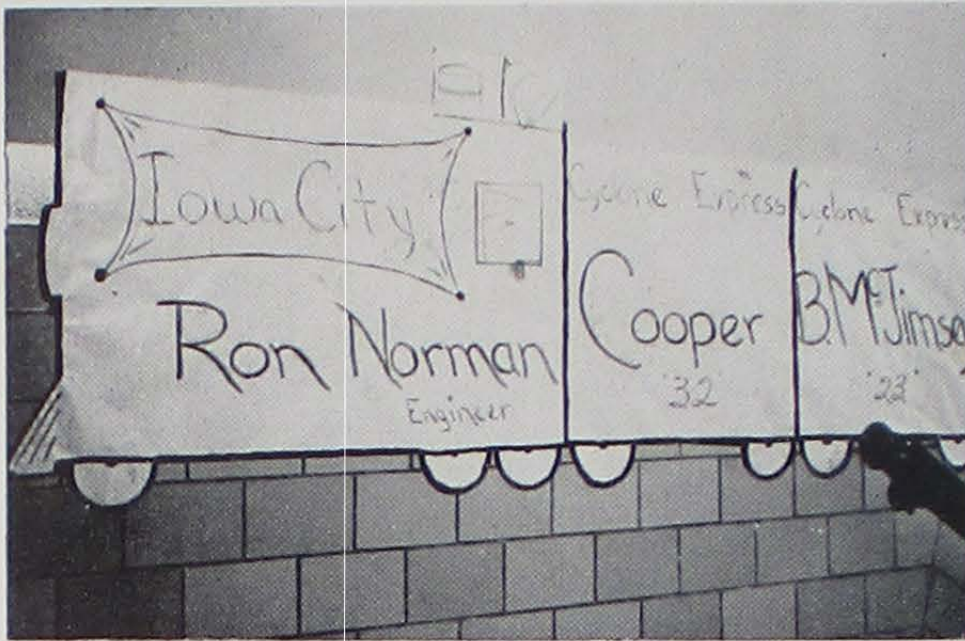 Iowa City
Ron Norman
Engineer
Express
Cooper
'32'
Cyclone Express
B. McJimse
'23'